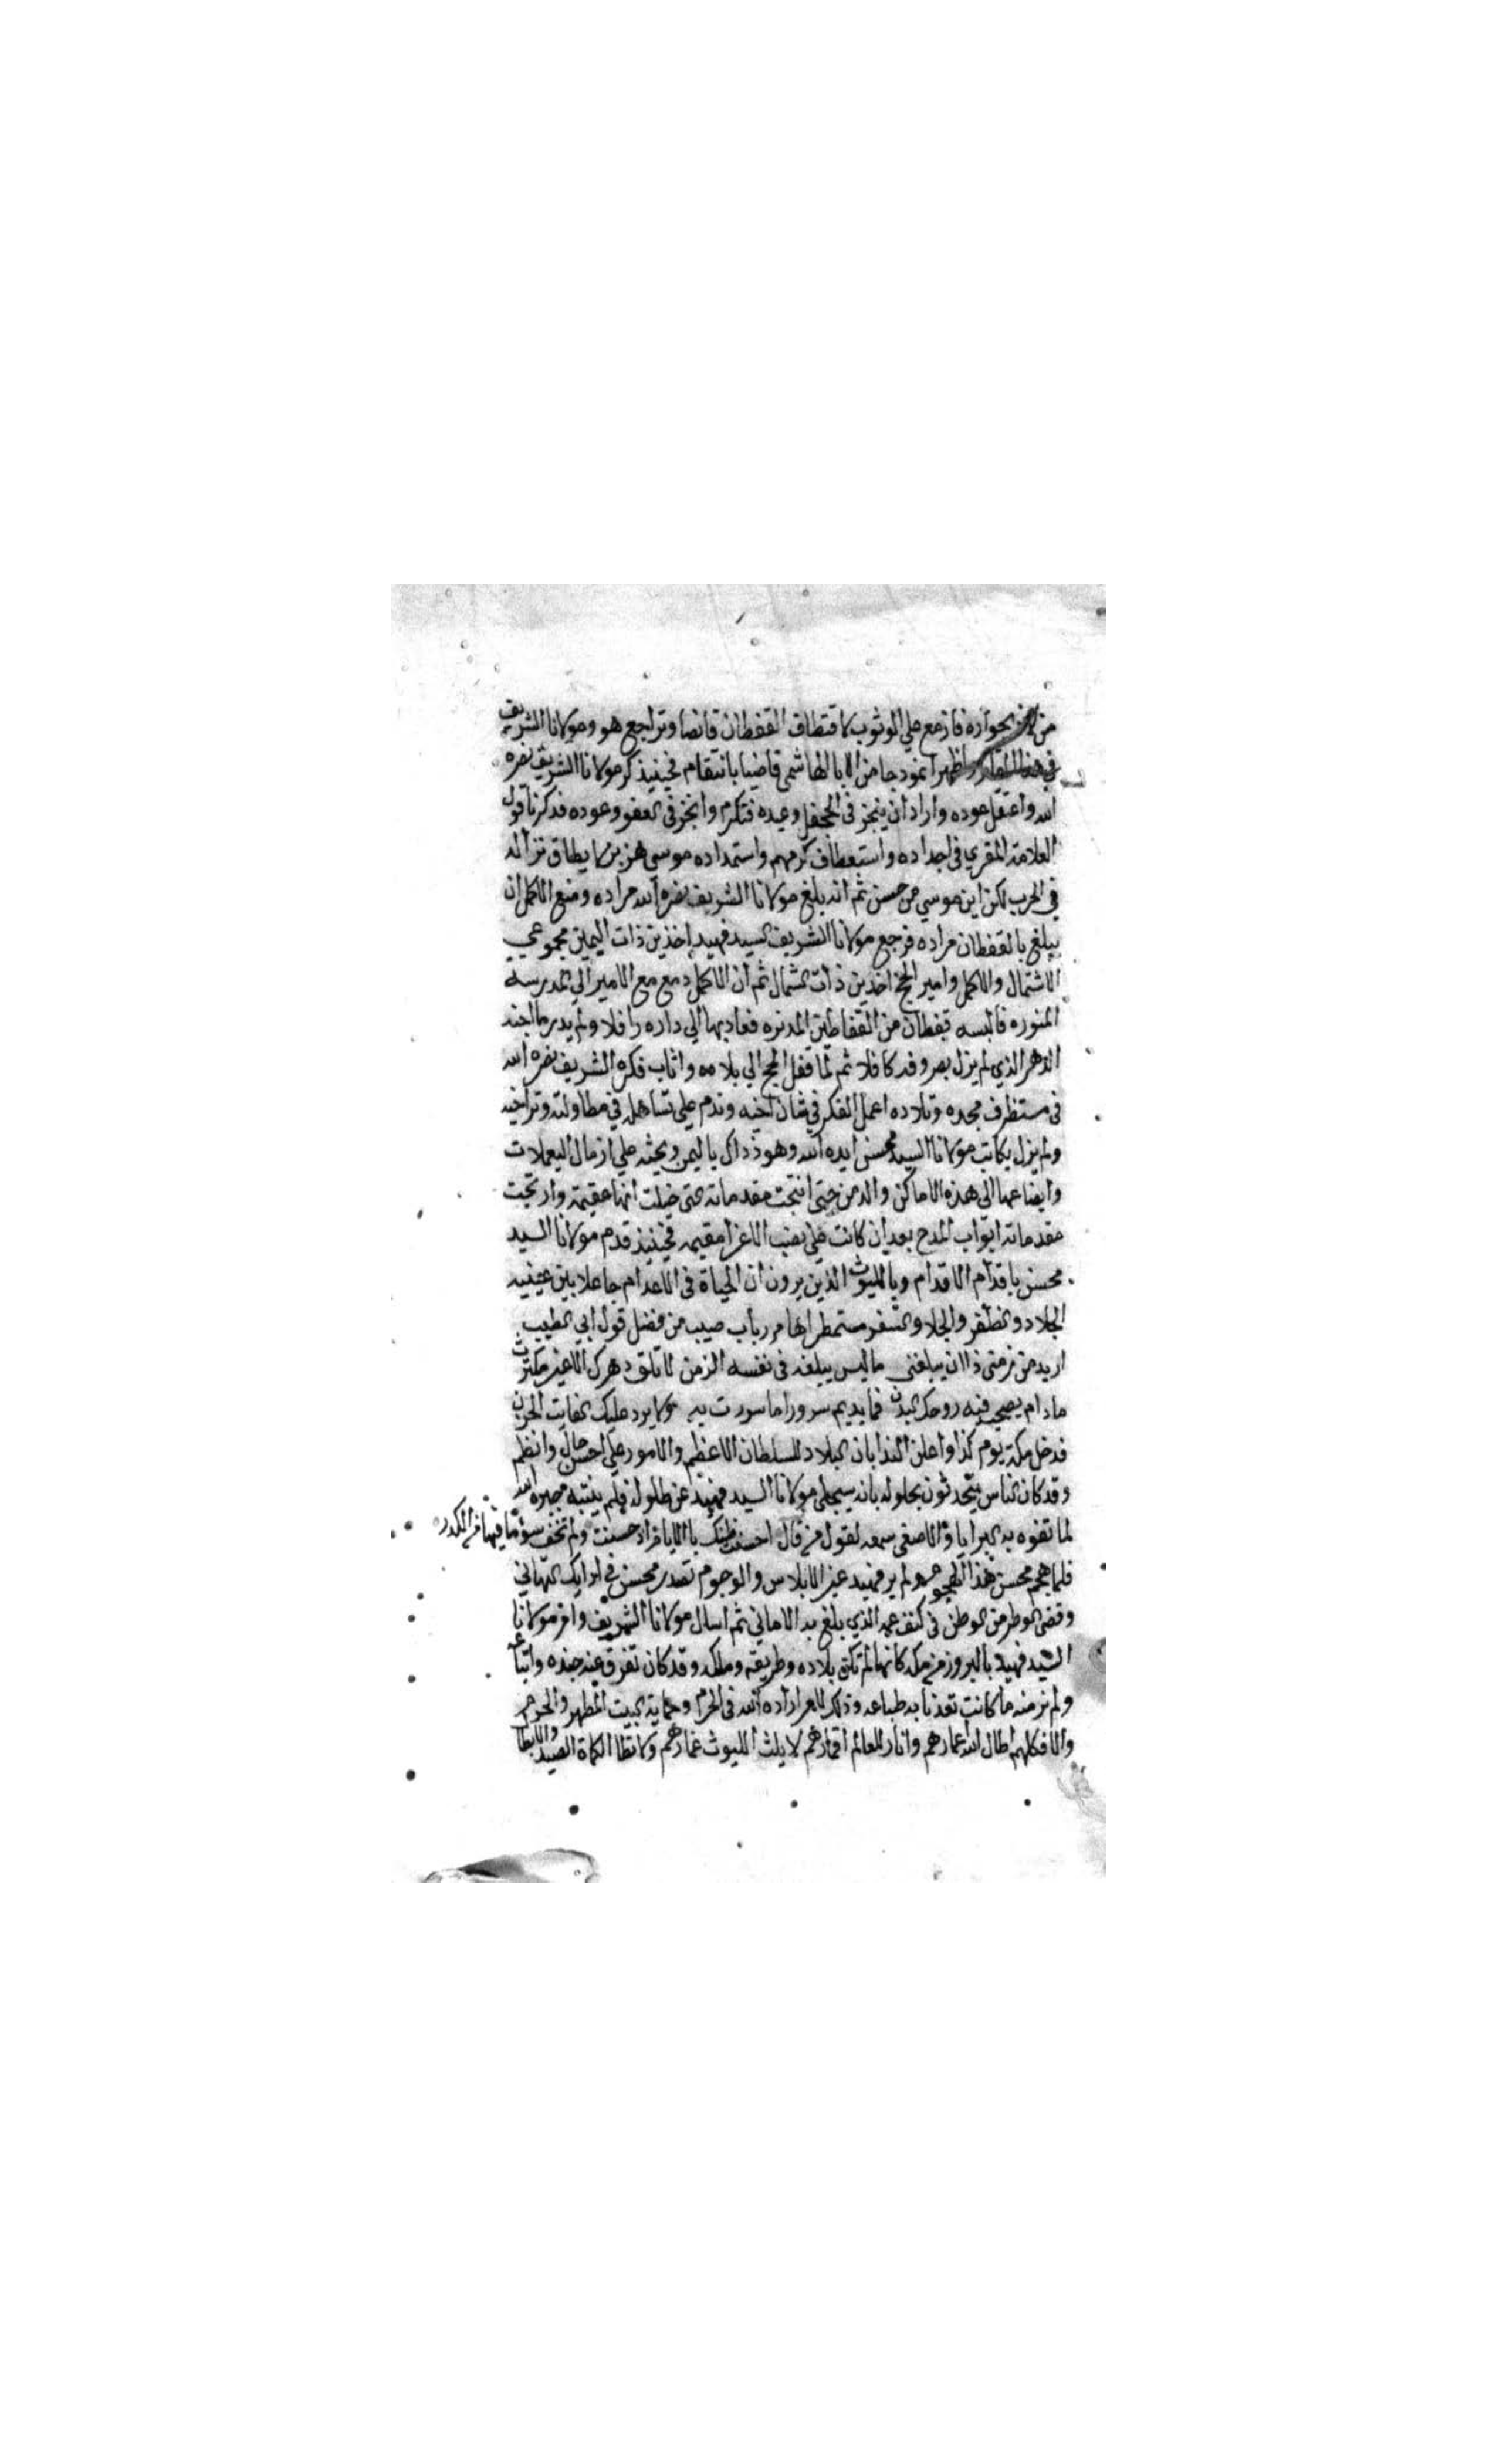 من كان بجواره فازمع علي الوثوب لاقتطاف القفطان قانصا وتراجع هو ومولانا الشريف
في هذا المقام واظهر انموذجا من الابا الهاشمي قاضيا بانتقام فحينيذ كر مولانا الشريف نصره
الله واعتقل عوده واراد ان ينجز في الجحفل وعيده فتكرم وانجز في العفو وعوده فذكرنا قول
العلامة المقري في اجداده واستعطاف كرمهم واستمداده موسي هزبر لا يطاق نزاله
في الحرب لكن اين موسي من حسن ثم انه بلغ مولانا الشريف نصره الله مراده ومنع الاكمل ان
يبلغ بالقفطان مراده فرجع مولانا الشريف السيد فهيد اخذين ذات اليمين مجموعي
الاشتمال والاكمل وامير الحج اخذين ذات الشمال ثم ان الاكمل دمع مع الامير الي المدرسه
المنوره فالبسه قفطان من القفاطين المدنره فعاد بها الي داره رافلا ولم يدر ما اجنه
الدهر الذي لم يزل بصروفه كافلا ثم لما قفل الحج الي بلاده واثاب فكره الشريف نصره الله
في مستظرف مجده وتلاده اعمل الفكر في شان اخيه وندم علي تساهله في مطاولته وتراخيه
ولم يزل يكاتب مولانا السيد محسن ايده الله وهو اذ ذاك باليمن ويحثه علي ارمال اليعملات
وايضاعها الي هذه الاماكن والدمن حتي انتجت مقدماته حتي خيلت انها عقيمة وارتجت
مقدماته ابواب المدح بعد ان كانت علي نصب الاغرا مقيمه فحينيذ قدم مولانا السيد
محسن باقدام الاقدام وبالليوث الذين يرون ان الحياة في الاعدام جاعلا بين عينيه
الجلاد والظفر والجلا والسفر مستمطرا لهام رباب صيب من فضل قول ابي الطيب
اريد من زمني ذا ان يبلغني ما ليس يبلغه في نفسه الزمن لا تلق دهرك الا غير مكترث
مادام يصحب فيه روحك البدن فما يديم سرورا ما سررت به ولا يرد عليك الفايت الحزن
فدخل مكة يوم كذا واعلن الندا بان البلاد للسلطان الاعظم والامور علي احسن حال وانظم
وقد كان الناس يتحدثون بحلوله بانه سيجلي مولانا السيد فهيد عن طلوله فلم ينتبه جبره الله
لما تفوه به البرايا ولا اصغي سمعه لقول من قال احسنت ظنك بالايام اذ حسنت ولم تخف سوء ما فيها من الكدر
فلما هجم محسن هذا الهجوم ولم ير فهيد غير الابلاس والوجوم تصدر محسن في ارايك التهاني
وقضي الوطر من الوطن في كنف عمه الذي بلغ به الاماني ثم اسال مولانا الشريف وامر مولانا
السيد فهيد بالبروز من مكة كانها لم تكن بلاده وطريقه وملكه وقد كان تفرق عنه جنده واتباعه
ولم نر منه ما كانت تعدنا به طباعه وذلك لامر اراده الله في الحرم وحماية البيت المطهر والحرم
والا فكلهم اطال الله اعمارهم وانار للعالم اقمارهم لا يلث الليوث غمارهم ولا تطا الكماة الصيد والابطال